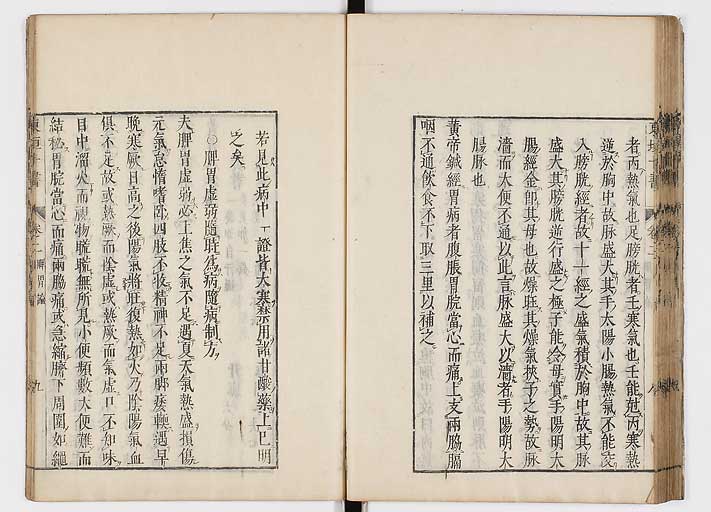 者丙熱氣也足膀胱者壬寒氣也壬能尅丙寒熱
逆於胸中故脉盛大其手太陽小腸熱氣不能交
入膀胱經者故十一經之盛氣積於胸中故其脉
盛大其膀胱逆行盛之極子能令母實手陽明大
腸經金卽其母也故燥旺其燥氣挾子之勢故脉
濇而大便不通以此言脉盛大以濇者手陽明大
腸脉也
黃帝鍼經胃病者腹脹胃脘當心而痛上支兩脇膈
咽不通飲食不下取三里以補之
若見此病中一證皆大寒禁用諸甘酸藥上已明
之矣
○脾胃虛弱隨時爲病隨病制方
夫脾胃虛弱必上焦之氣不足遇夏天氣熱盛損傷
元氣怠惰嗜卧四肢不收精神不足兩脚痿軟遇早
晚寒厥日高之後陽氣將旺復熱如火乃陰陽氣血
俱不足故或熱厥而陰虛或寒厥而氣虛口不知味
目中溜火而視物䀮䀮無所見小便頻數大便難而
結秘胃脘當心而痛兩脇痛或急縮臍下周圍如繩
東垣十書 卷二 脾胃論 九